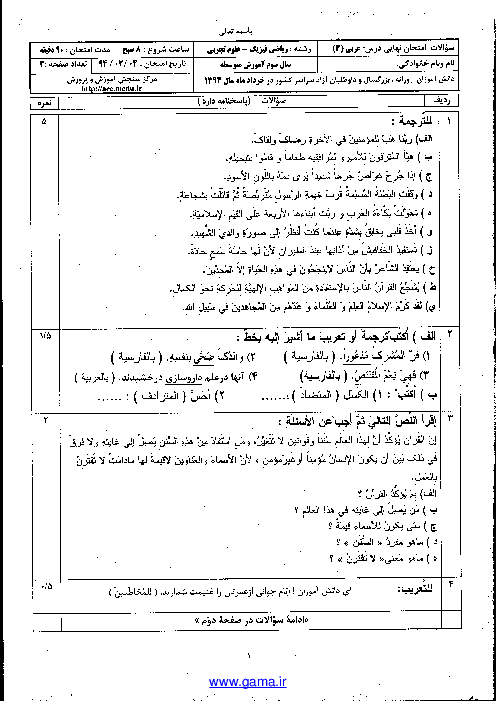 باسمه تعالی
سؤالات امتحان نهایی درس: عربی (۳)
رشته : ریاضی فیزیک – علوم تجربی
ساعت شروع : ۸ صبح
مدت امتحان : ۹۰ دقیقه
نام ونام خانوادگی:
سال سوم آموزش متوسطه
تاریخ امتحان :
تعداد صفحه :
دانش آموزان روزانه ، بزرگسال و داوطلبان آزاد سراسر کشور در خرداد ماه سال ۱۳۹۴
مرکز سنجش آموزش و پرورش
http://aee.medu.ir
ردیف
سؤالات (پاسخنامه دارد)
نمره
۱
للترجمة :
۵
الف) ربّنا هَبْ للمؤمنین في الآخرة رضاك ولقاك.
ب ) هیّأ المترفون للأمیر و مُرافقیه طعاماً و قاموا بتبجیله.
ج ) إذا جُرِحَ غوّاصٌ جُرحاً شدیداً یَری دمَهُ باللّونِ الأسود.
د ) وقفت البطلة المسلمة قُربَ خیمةِ الرسولِ مُتربّصةً ثُمَّ قاتَلَتْ بشجاعةٍ.
ه ) تحوّلت بکّاءةُ العرب و ربّت أبناءها الأربعة علی القِیَم الإسلامیّة.
و ) أخذ قلبي یخفق بشدّةٍ عندما کنتُ أنظرُ إلی صورةِ والدي الشّهید.
ز ) تستفید الخفافیش مِن آذانها عند الطیران لأنّ لها حاسّة سمع حادّة.
ح ) یعتقد الشّاعر بأنّ النّاس لاینجحون في هذه الحیاة إلّا المُجدّین.
ط ) یُشجّع القرآن النّاسَ بالإستفادة مِن المواهب الإلهیّة للحرکة نحو الکمال.
ي ) لقد کرّم الإسلام العلم و العُلماء و عَدَّهم مِن المجاهدین في سبیل الله.
۲
الف ) اُکتُب ترجمة أو تعریب ما أُشیرَ إلیه بخطّ :
۱/۵
۱) فرّ المُشرِک مَذعوراً. ( بالفارسیة )
۲) والدُك ضَحّی بنفسه. ( بالفارسیة )
۳) فهي نِعْمَ المُقتنَص. ( بالفارسیة )
۴) آنها درعلم داروسازی درخشیدند. ( بالعربیة )
ب ) اُکتُبْ : ۱) الکَسَل ( المتضادّ ) .......
۲) أحَسَّ ( المترادف ) : ......
۳
إقرأ النصَّ التالي ثمّ أجِب عن الأسئلة :
۲
إنّ القرآن یُؤکّدُ أنّ لِهذا العالَم سُنَناً وقوانین لا تتغیّرُ، ومَن استفادَ مِن هذه السُّنَنِ یَصِلُ إلی غایتهِ ولا فرقَ
في ذلک بین أن یکون الإنسانُ مُؤمناً أو غیرَمؤمنٍ ، لأنّ الأسماءَ والعَناوینَ لاقیمةَ لها مادامَتْ لا تَقتَرِنُ
بِالعَمَلِ.
الف) بِمَ یُؤکّدُ القرآنُ ؟
ب ) مَن یَصِلُ إلی غایته في هذا العالَم ؟
ج ) مَتی یکونُ للأسماءِ قیمةٌ ؟
د ) ماهو مفردُ « السُّنَن » ؟
ه ) ماهو مَعنی« لا تَقتَرِنُ » ؟
۴
للتّعریب:
ای دانش آموزان ! ایّام جوانی ازعمرتان را غنیمت شمارید. ( للمُخاطَبینَ )
۰/۵
«ادامهٔ سؤالات در صفحهٔ دوّم »
۱
www.gama.ir